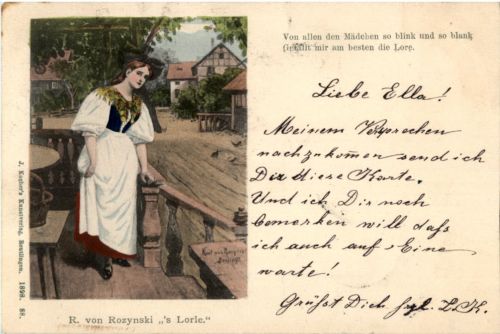 Von allen den Mädchen so blink und so blank
Gefällt mir am besten die Lore.
Liebe Ella!
Meinem Versprechen
nachzukommen send ich
Dir diese Karte.
Und ich Dir noch
bemerken will daß
ich auch auf Eine
warte!
Grüßt Dich L. K.
J. Kocher's Kunstverlag, Reutlingen. 1898. 88.
R. von Rozynski „'s Lorle."